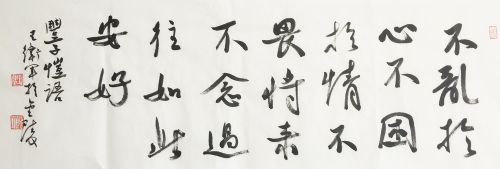 不亂於
心不困
於情不
畏将来
不念過
往如此
安好
豐子愷語
王衛軍於